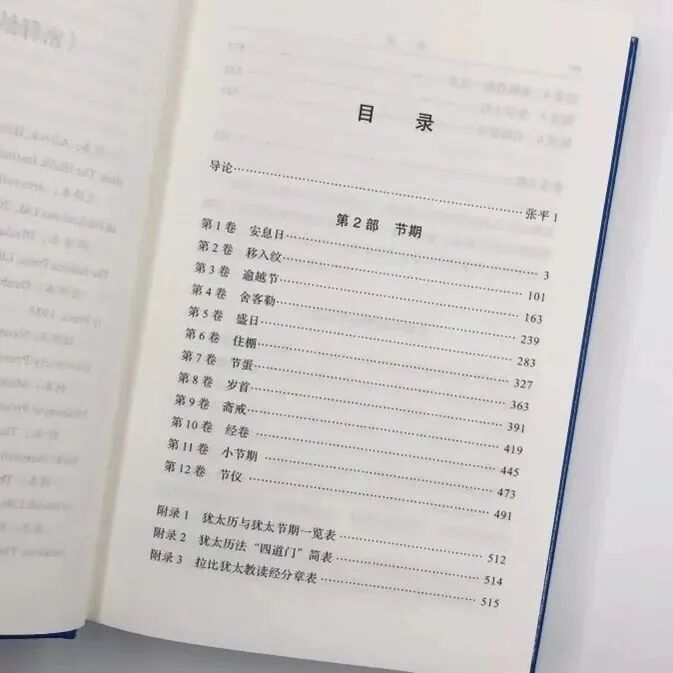 目 录
导论……张平 1
第2部 节期
第1卷 安息日……3
第2卷 移入纹……101
第3卷 逾越节……163
第4卷 舍客勒……239
第5卷 盛日……283
第6卷 住棚……327
第7卷 节蛋……363
第8卷 岁首……391
第9卷 斋戒……419
第10卷 经卷……445
第11卷 小节期……473
第12卷 节仪……491
附录1 犹太历与犹太节期一览表……512
附录2 犹太历法“四道门”简表……514
附录3 拉比犹太教读经分章表……515